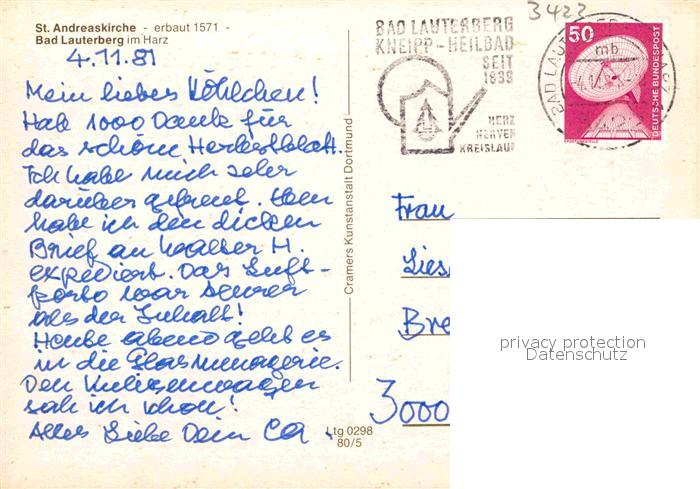 St. Andreaskirche - erbaut 1571 -
Bad Lauterberg im Harz
4.11.81
Mein liebes Köhlchen!
Hab 1000 Dank für
das schöne Herbstblatt.
Ich habe mich sehr
darüber gefreut.
habe ich den dicken
Brief an Walter H.
expediert. Das Luft-
porto war teurer
als der Inhalt!
Heute abend geht es
in die Glasmenagerie.
Den
sah ich schon!
Alles Liebe Dein
Cramers Kunstanstalt Dortmund
Ltg 0298
80/5
3423
BAD LAUTERBERG
KNEIPP-HEILBAD
SEIT
1839
HERZ
NERVEN
KREISLAUF
BAD LAUTERBERG
mb
50
DEUTSCHE BUNDESPOST
Frau
Lies
Bre
3000
privacy protection
Datenschutz